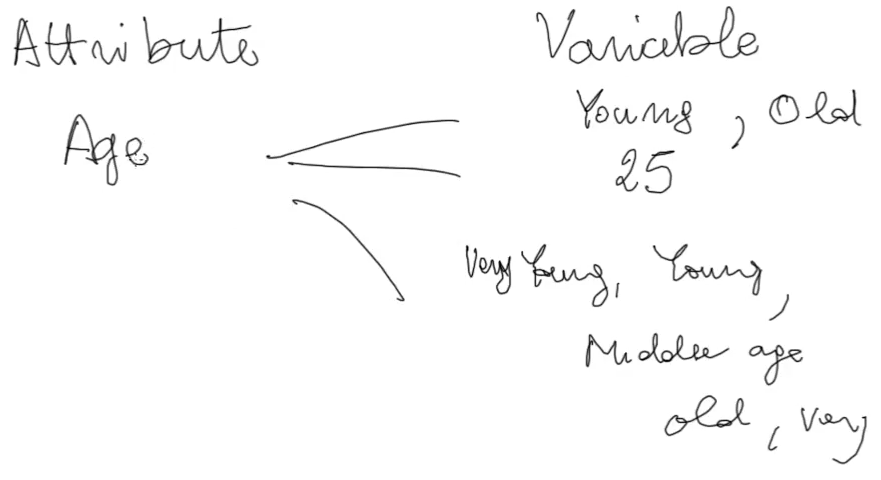 Attribute
Variable
Age
Young, Old
25
Very Young, Young,
Middle age
old, very